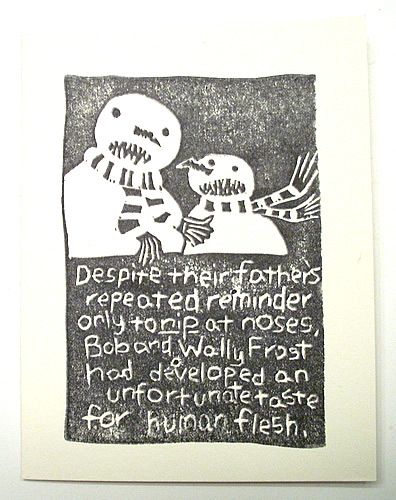 Despite their father's
repeated reminder
only to nip at noses,
Bob and Wally Frost
had developed an
unfortunate taste
for human flesh.